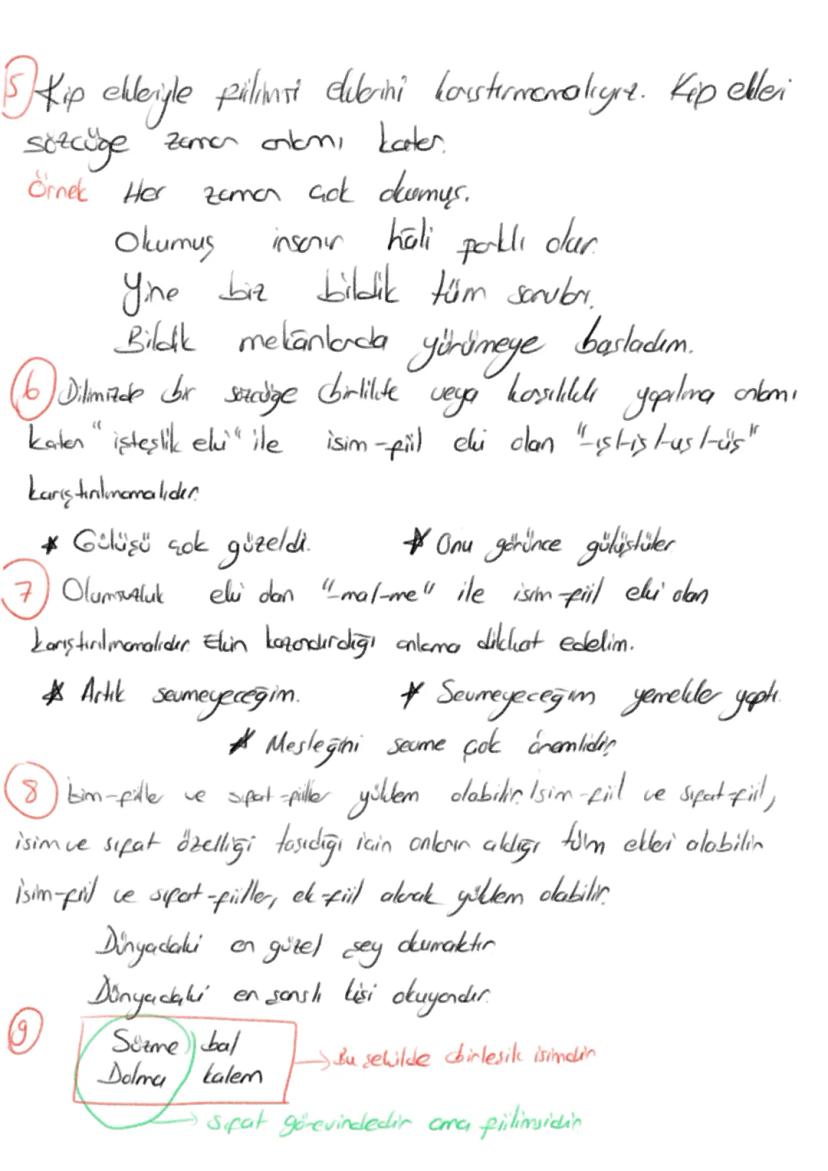 5 Kip ekleriyle fiilimsi eklerini karıştırmamalıyız. Kip ekleri
sözcüğe zaman anlamı katar.
Örnek Her zaman çok okumuş.
Okumuş insanın hâli farklı olur.
Yine biz bildik tüm soruları.
Bildik mekânlarda yürümeye başladım.
6 Dilimizde bir sözcüğe birlikte veya karşılıklı yapılma anlamı
katan "işteşlik eki" ile isim-fiil eki olan "-ış/-iş/-uş/-üş"
karıştırılmamalıdır.
* Gülüşü çok güzeldi. * Onu görünce gülüştüler
7 Olumsuzluk eki olan "-ma/-me" ile isim-fiil eki olan
karıştırılmamalıdır. Ekin kazandırdığı anlama dikkat edelim.
* Artık sevmeyeceğim. * Sevmeyeceğim yemekler yaptı.
* Mesleğini sevme çok önemlidir.
8 İsim-fiiller ve sıfat-fiiller yüklem olabilir. İsim-fiil ve sıfat-fiil,
isim ve sıfat özelliği taşıdığı için onların aldığı tüm ekleri alabilir.
İsim-fiil ve sıfat-fiiller, ek-fiil alarak yüklem olabilir.
Dünyadaki en güzel şey okumaktır.
Dünyadaki en şanslı kişi okuyandır.
9 Süzme bal
Dolma kalem
→ Bu şekilde birleşik isimdir
→ sıfat görevindedir ama fiilimsidir